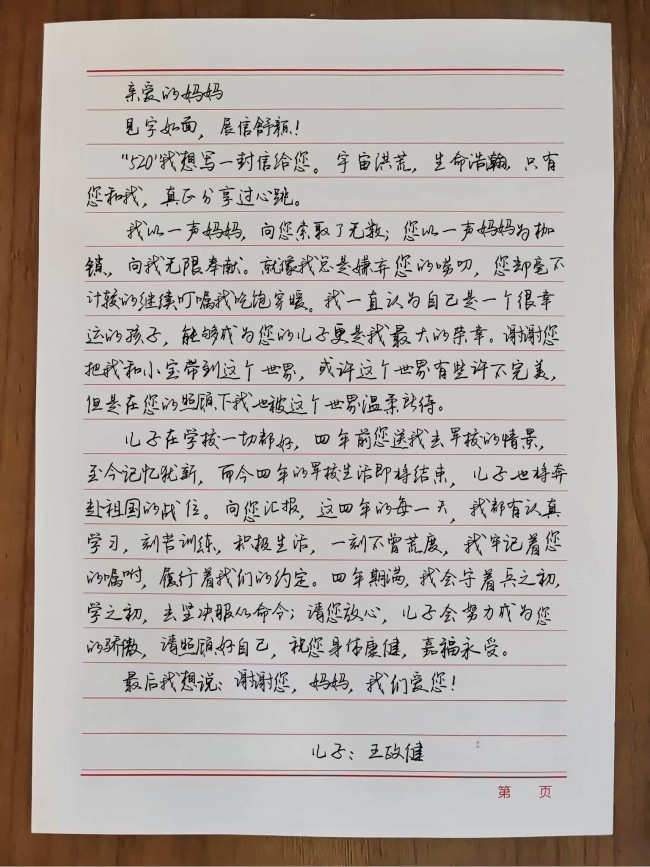 亲爱的妈妈
见字如面，展信舒颜！
"520"我想写一封信给您。宇宙洪荒，生命浩瀚，只有
您和我，真正分享过心跳。
我以一声妈妈，向您索取了无数；您以一声妈妈为枷
锁，向我无限奉献。就像我总是嫌弃您的唠叨，您却毫不
计较的继续叮嘱我吃饱穿暖。我一直认为自己是一个很幸
运的孩子，能够成为您的儿子更是我最大的荣幸。谢谢您
把我和小宝带到这个世界，或许这个世界有些许不完美，
但是在您的照顾下我也被这个世界温柔以待。
儿子在学校一切都好，四年前您送我去军校的情景，
至今记忆犹新，而今四年的军校生活即将结束，儿子也将奔
赴祖国的战位。向您汇报，这四年的每一天，我都有认真
学习，刻苦训练，积极生活，一刻不曾荒废，我牢记着您
的嘱咐，履行着我们的约定。四年期满，我会守着兵之初，
学之初，去坚决服从命令；请您放心，儿子会努力成为您
的骄傲，请照顾好自己，祝您身体康健，嘉福永受。
最后我想说：谢谢您，妈妈，我们爱您！
儿子：王政健
第 页